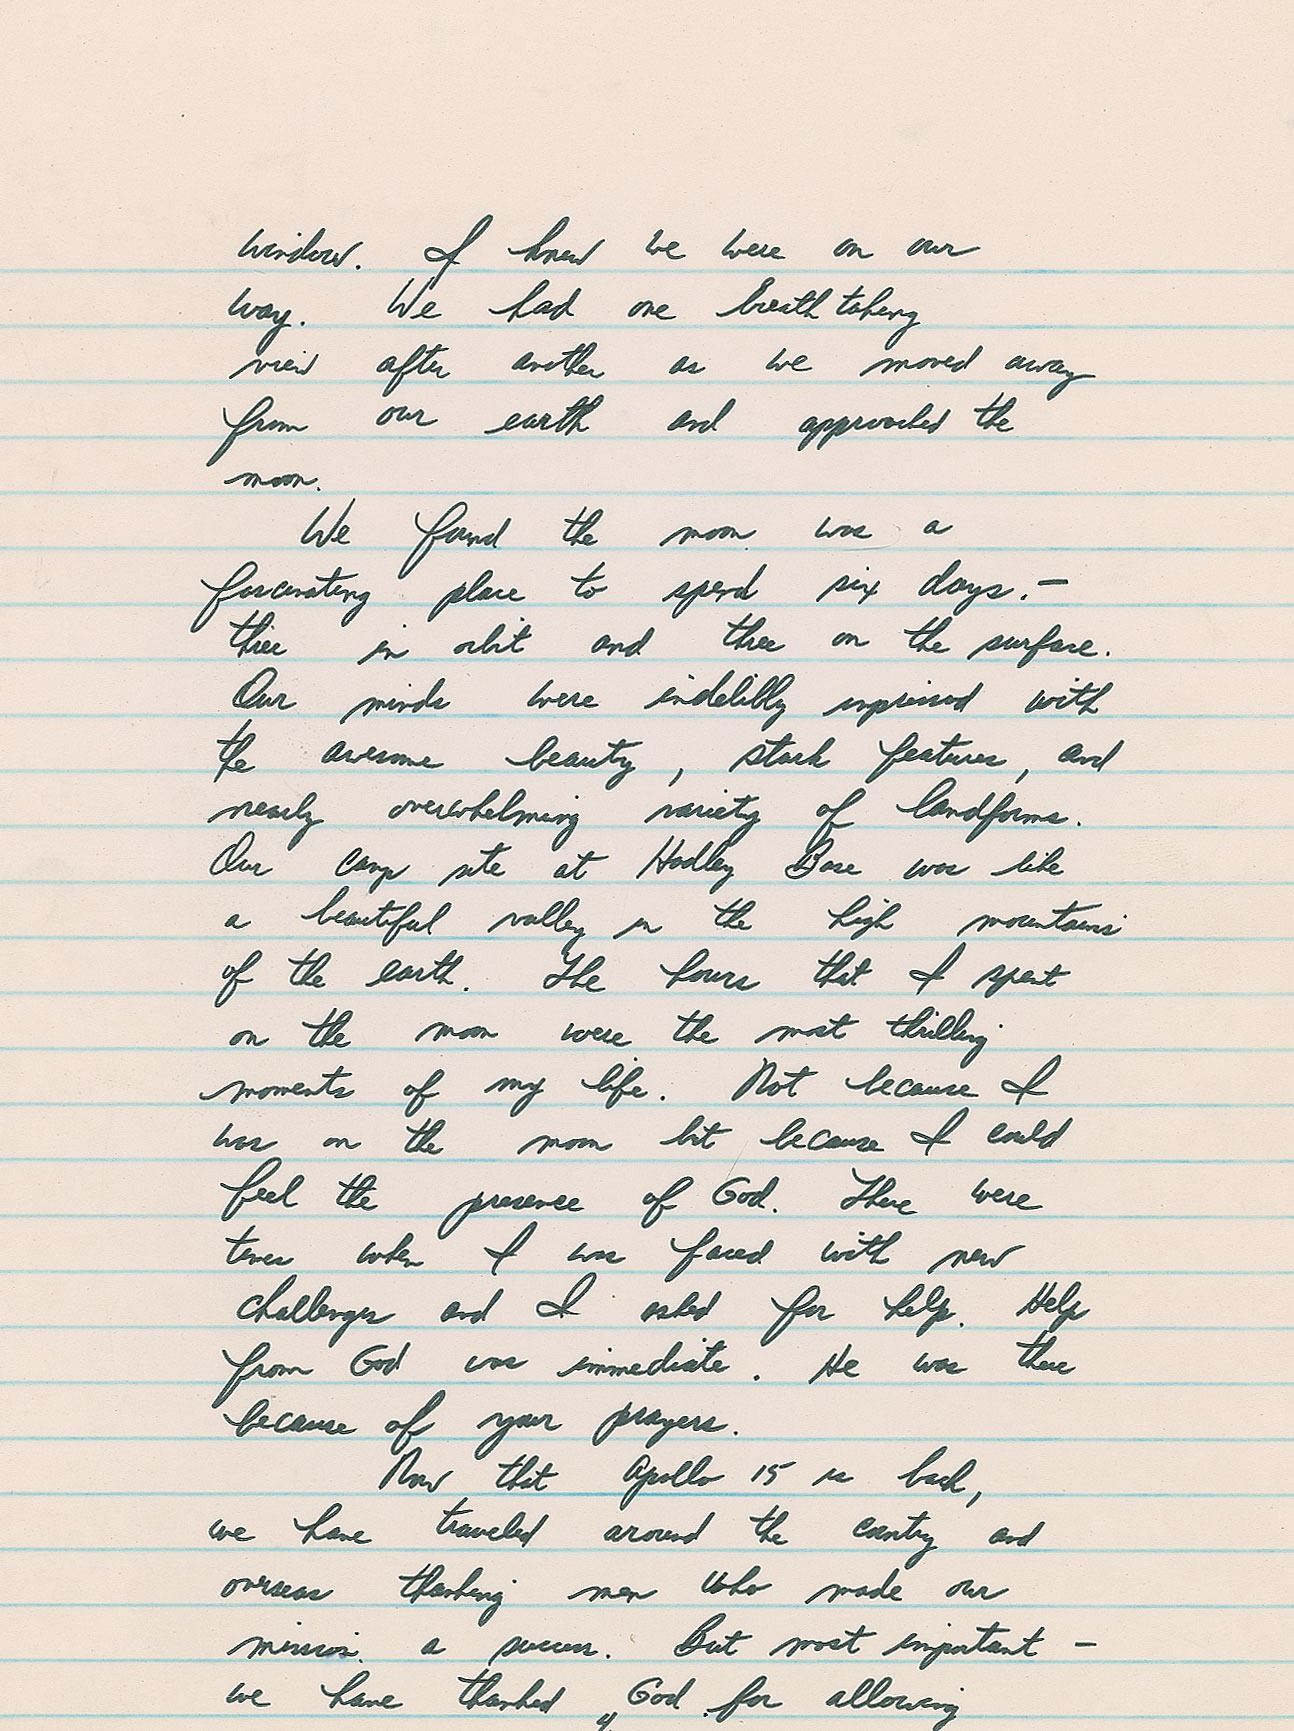 window. I knew we were on our
way. We had one breath taking
view after another as we moved away
from our earth and approached the
moon.
We found the moon was a
fascinating place to spend six days. —
three in orbit and three on the surface.
Our minds were indelibly impressed with
the awesome beauty, stark features, and
nearly overwhelming variety of landforms.
Our camp site at Hadley Base was like
a beautiful valley in the high mountains
of the earth. The hours that I spent
on the moon were the most thrilling
moments of my life. Not because I
was on the moon but because I could
feel the presence of God. There were
times when I was faced with new
challenges and I asked for help. Help
from God was immediate. He was there
because of your prayers.
Now that Apollo 15 is back,
we have traveled around the country and
overseas thanking men who made our
mission a success. But most important —
we have thanked God for allowing